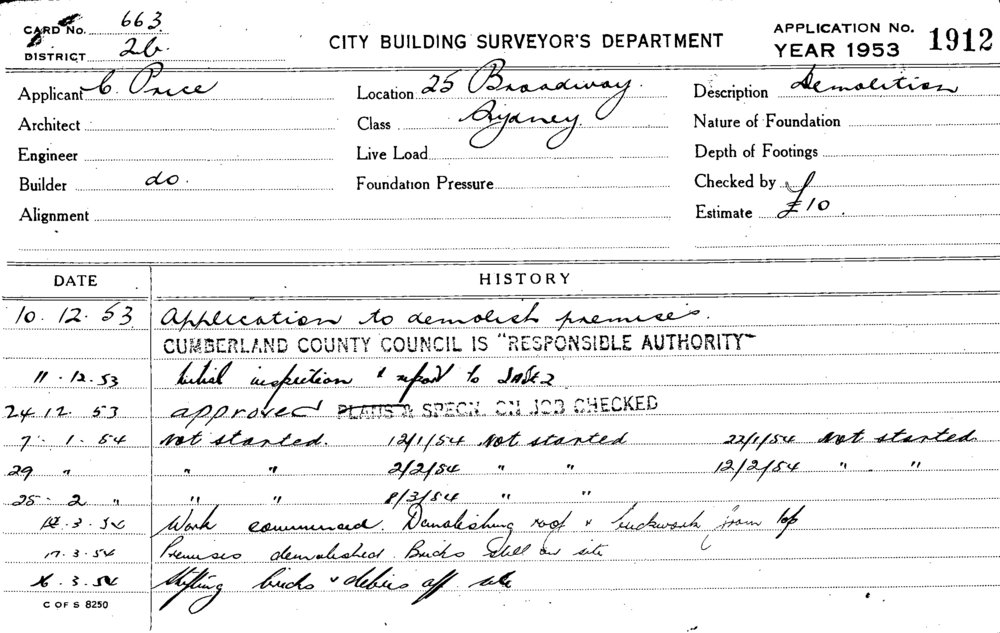 CARD No. 663
DISTRICT 2b.
CITY BUILDING SURVEYOR'S DEPARTMENT
APPLICATION No. 1912
YEAR 1953
Applicant C. Price
Location 25 Broadway.
Description Demolition
Architect
Class Sydney
Nature of Foundation
Engineer
Live Load
Depth of Footings
Builder do.
Foundation Pressure
Checked by
Alignment
Estimate £10.
DATE HISTORY
10. 12. 53 Application to demolish premises.
CUMBERLAND COUNTY COUNCIL IS "RESPONSIBLE AUTHORITY"
11. 12. 53 Initial inspection & report to
24. 12. 53 approved PLANS & SPECN. ON JOB CHECKED
7. 1. 54 Not started. 12/1/54 Not started 22/1/54 Not started
29 " " " 2/2/54 " " 12/2/54 " "
25. 2 " " " 8/3/54 " "
.3.54 Work commenced. Demolishing roof & brickwork from top
17.3.54 Premises demolished. Bricks still on site
.3.54 Shifting bricks & debris off site
C OF S 8250